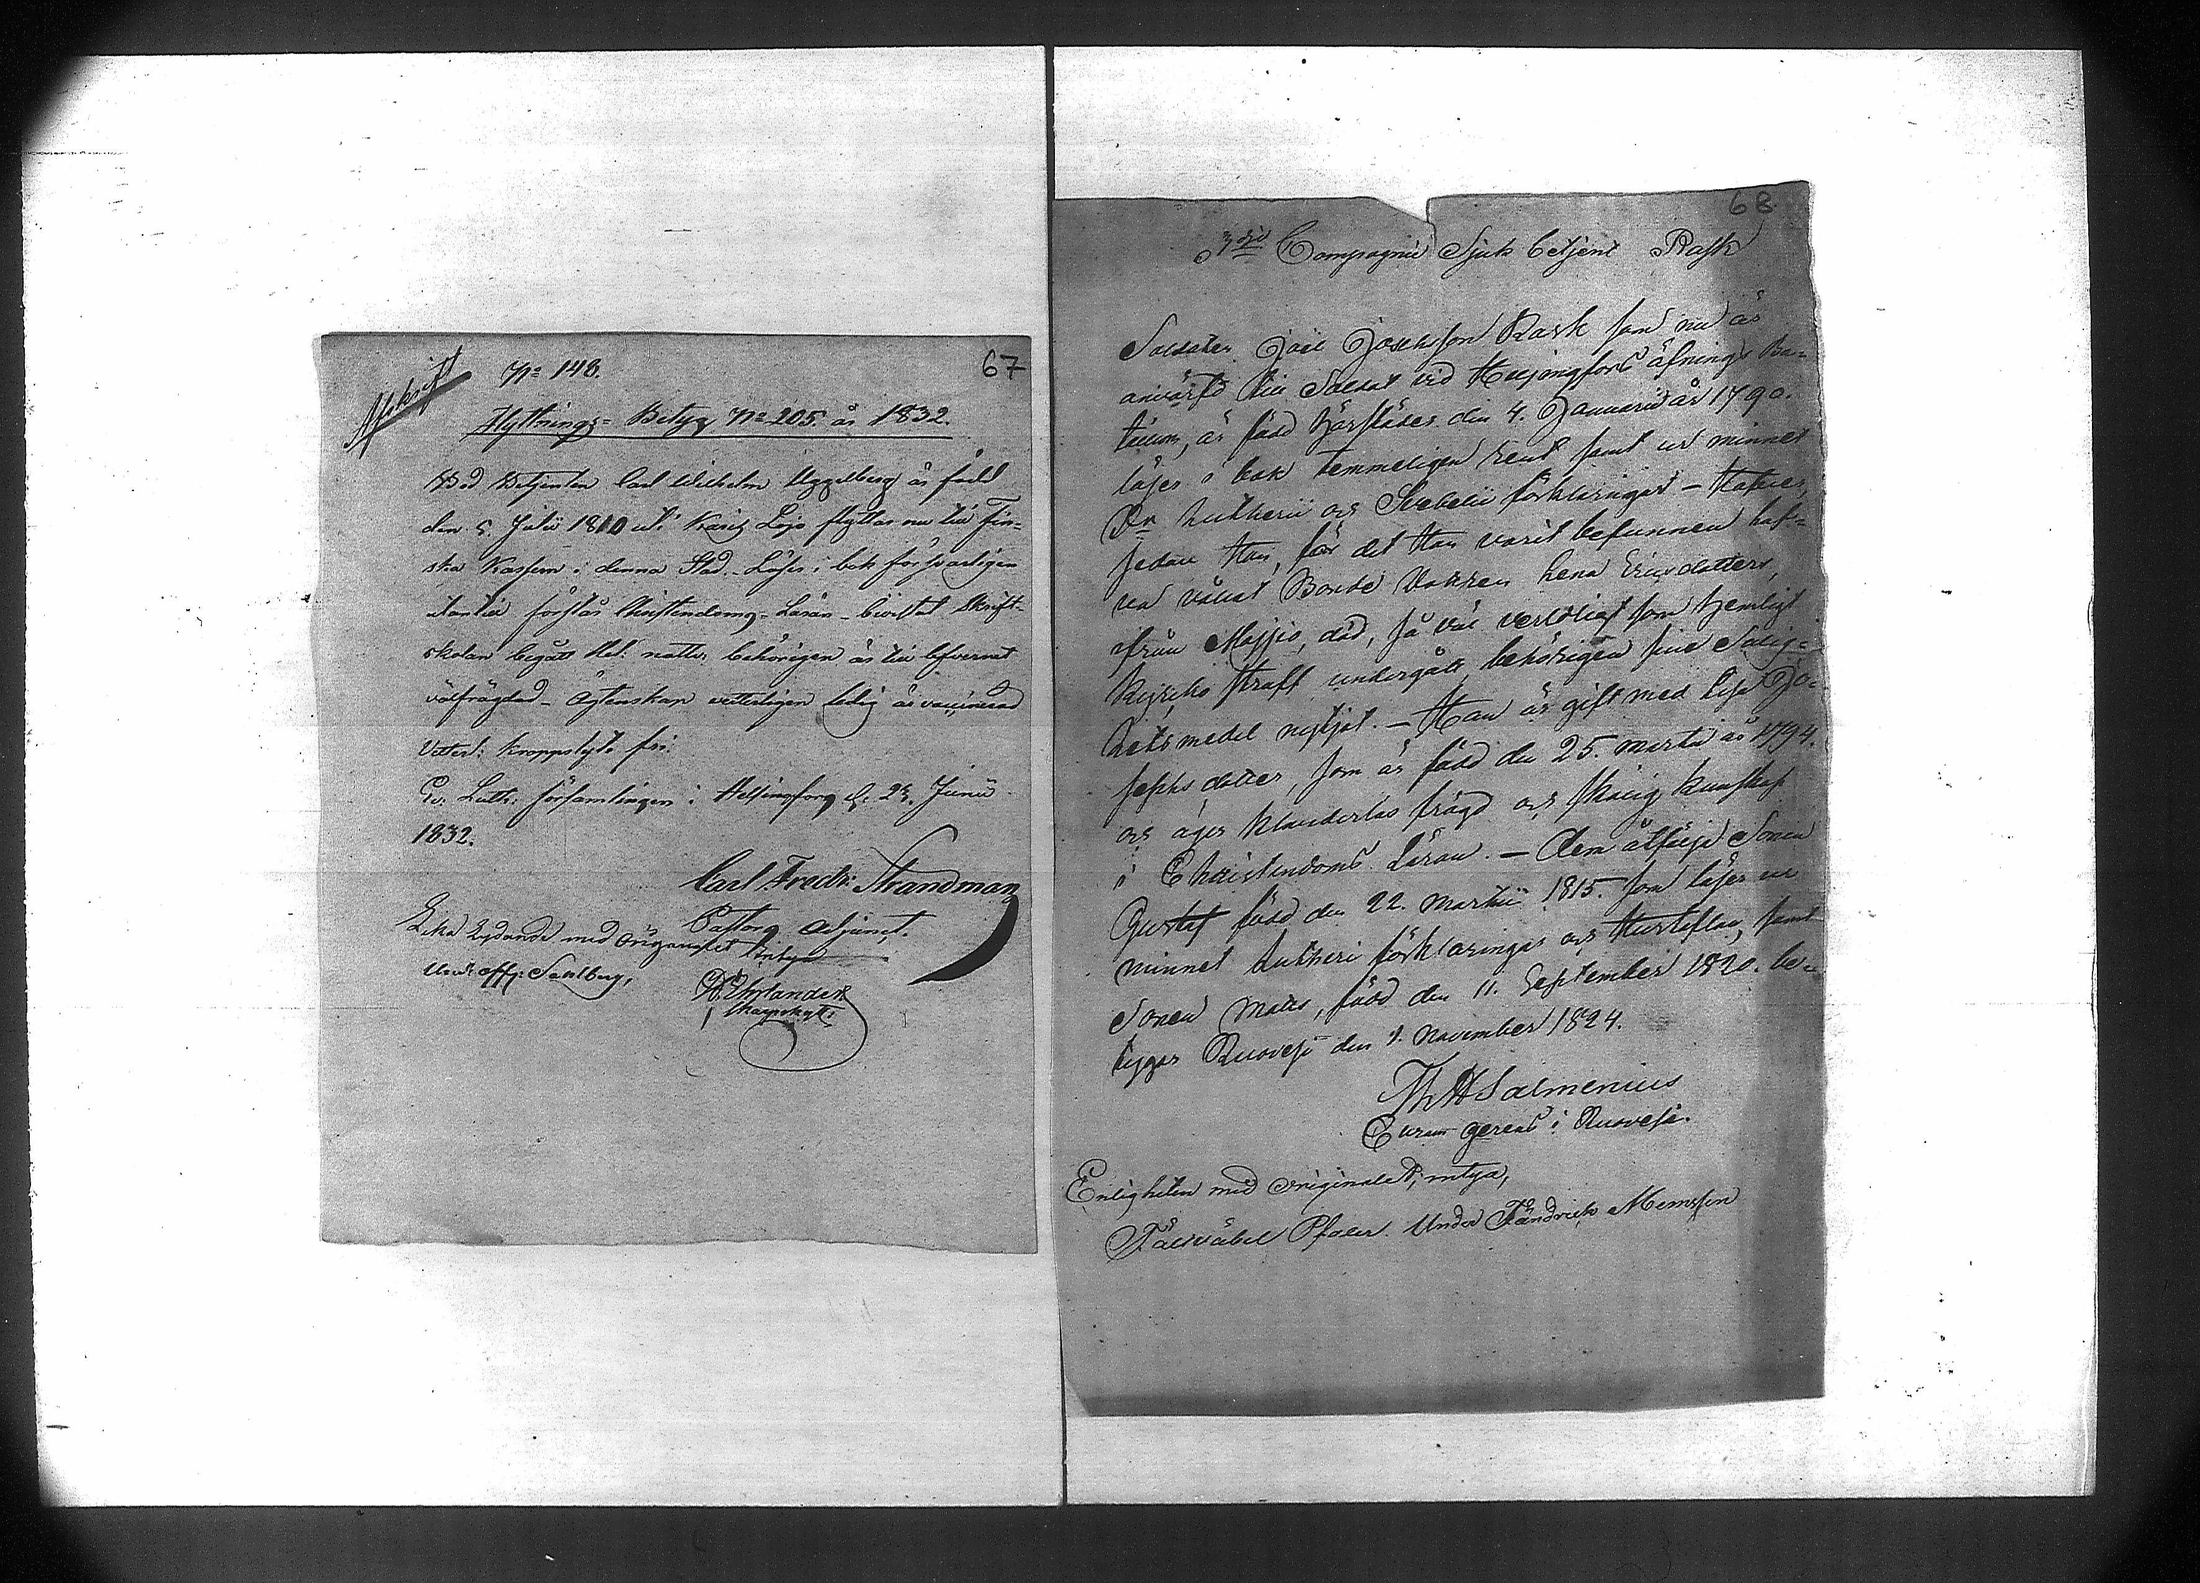 67
Afskrift
No 148.
Flyttnings- Betyg No 205. år 1832.
Betjenten Carl Wilhelm Uggelberg är född
den 5 Julii 1810 uti Karis Lojo flyttar nu till Fin-
ska Kasern i denna Stad. Läser i bok försvarligen
förstår Christendoms- Läran - bivistat Skrift-
skolan begått H. H. nattv. behörigen är till lefvernet
välfrägdad - ägtenskap vetterligen ledig är vaccinerad
Vetterl: kroppslyte fri.
Ev. Luth: församlingen i Helsingfors d. 23. Junii
1832.
Carl Fredr: Strandman
Pastors adjunct.
Lika Lydande med Originalet intyga
Und: Off: Sahlberg,
68
3dje Compagnie Sjuk betjent Rask
Soldaten Joël Josephsson Rask som nu är
anvärfd till Soldat vid Helsingfors öfnings Ba-
taillon, är född härstädes den 4. Januarii år 1790.
läser i bok temmeligen rent samt ur minnet
Dr. Lutheri och Svebelii förklaringar -
sedan Han, för det Han varit befunnen haf-
va våldat Bonde Enkan Lena Ericsdotters,
ifrån död, så väl verldsligt som hemligt
Kyrcko straff undergått, behörigen sine Salig-
hets medel nyttjat. - Han är gift med Lisa Jo-
sephs dotter, som är född den 25. Martii år 1794.
och äger klanderlös frägd och skälig kunskap
i Christendoms Läran. - Dem åtfölje Sonen
Gustaf född den 22. Martii 1815. som läser ur
minnet Lutheri förklaringar och Hustaflan, samt
Sonen Matts, född den 11. September 1820. be-
tygar Ruovesi den 9. November 1824.
Th H Salmenius
Curam gerens i Ruovesi.
Enligheten med originalet, intyga,
Fältväbel Pfaler. Under Fändrick Memsen